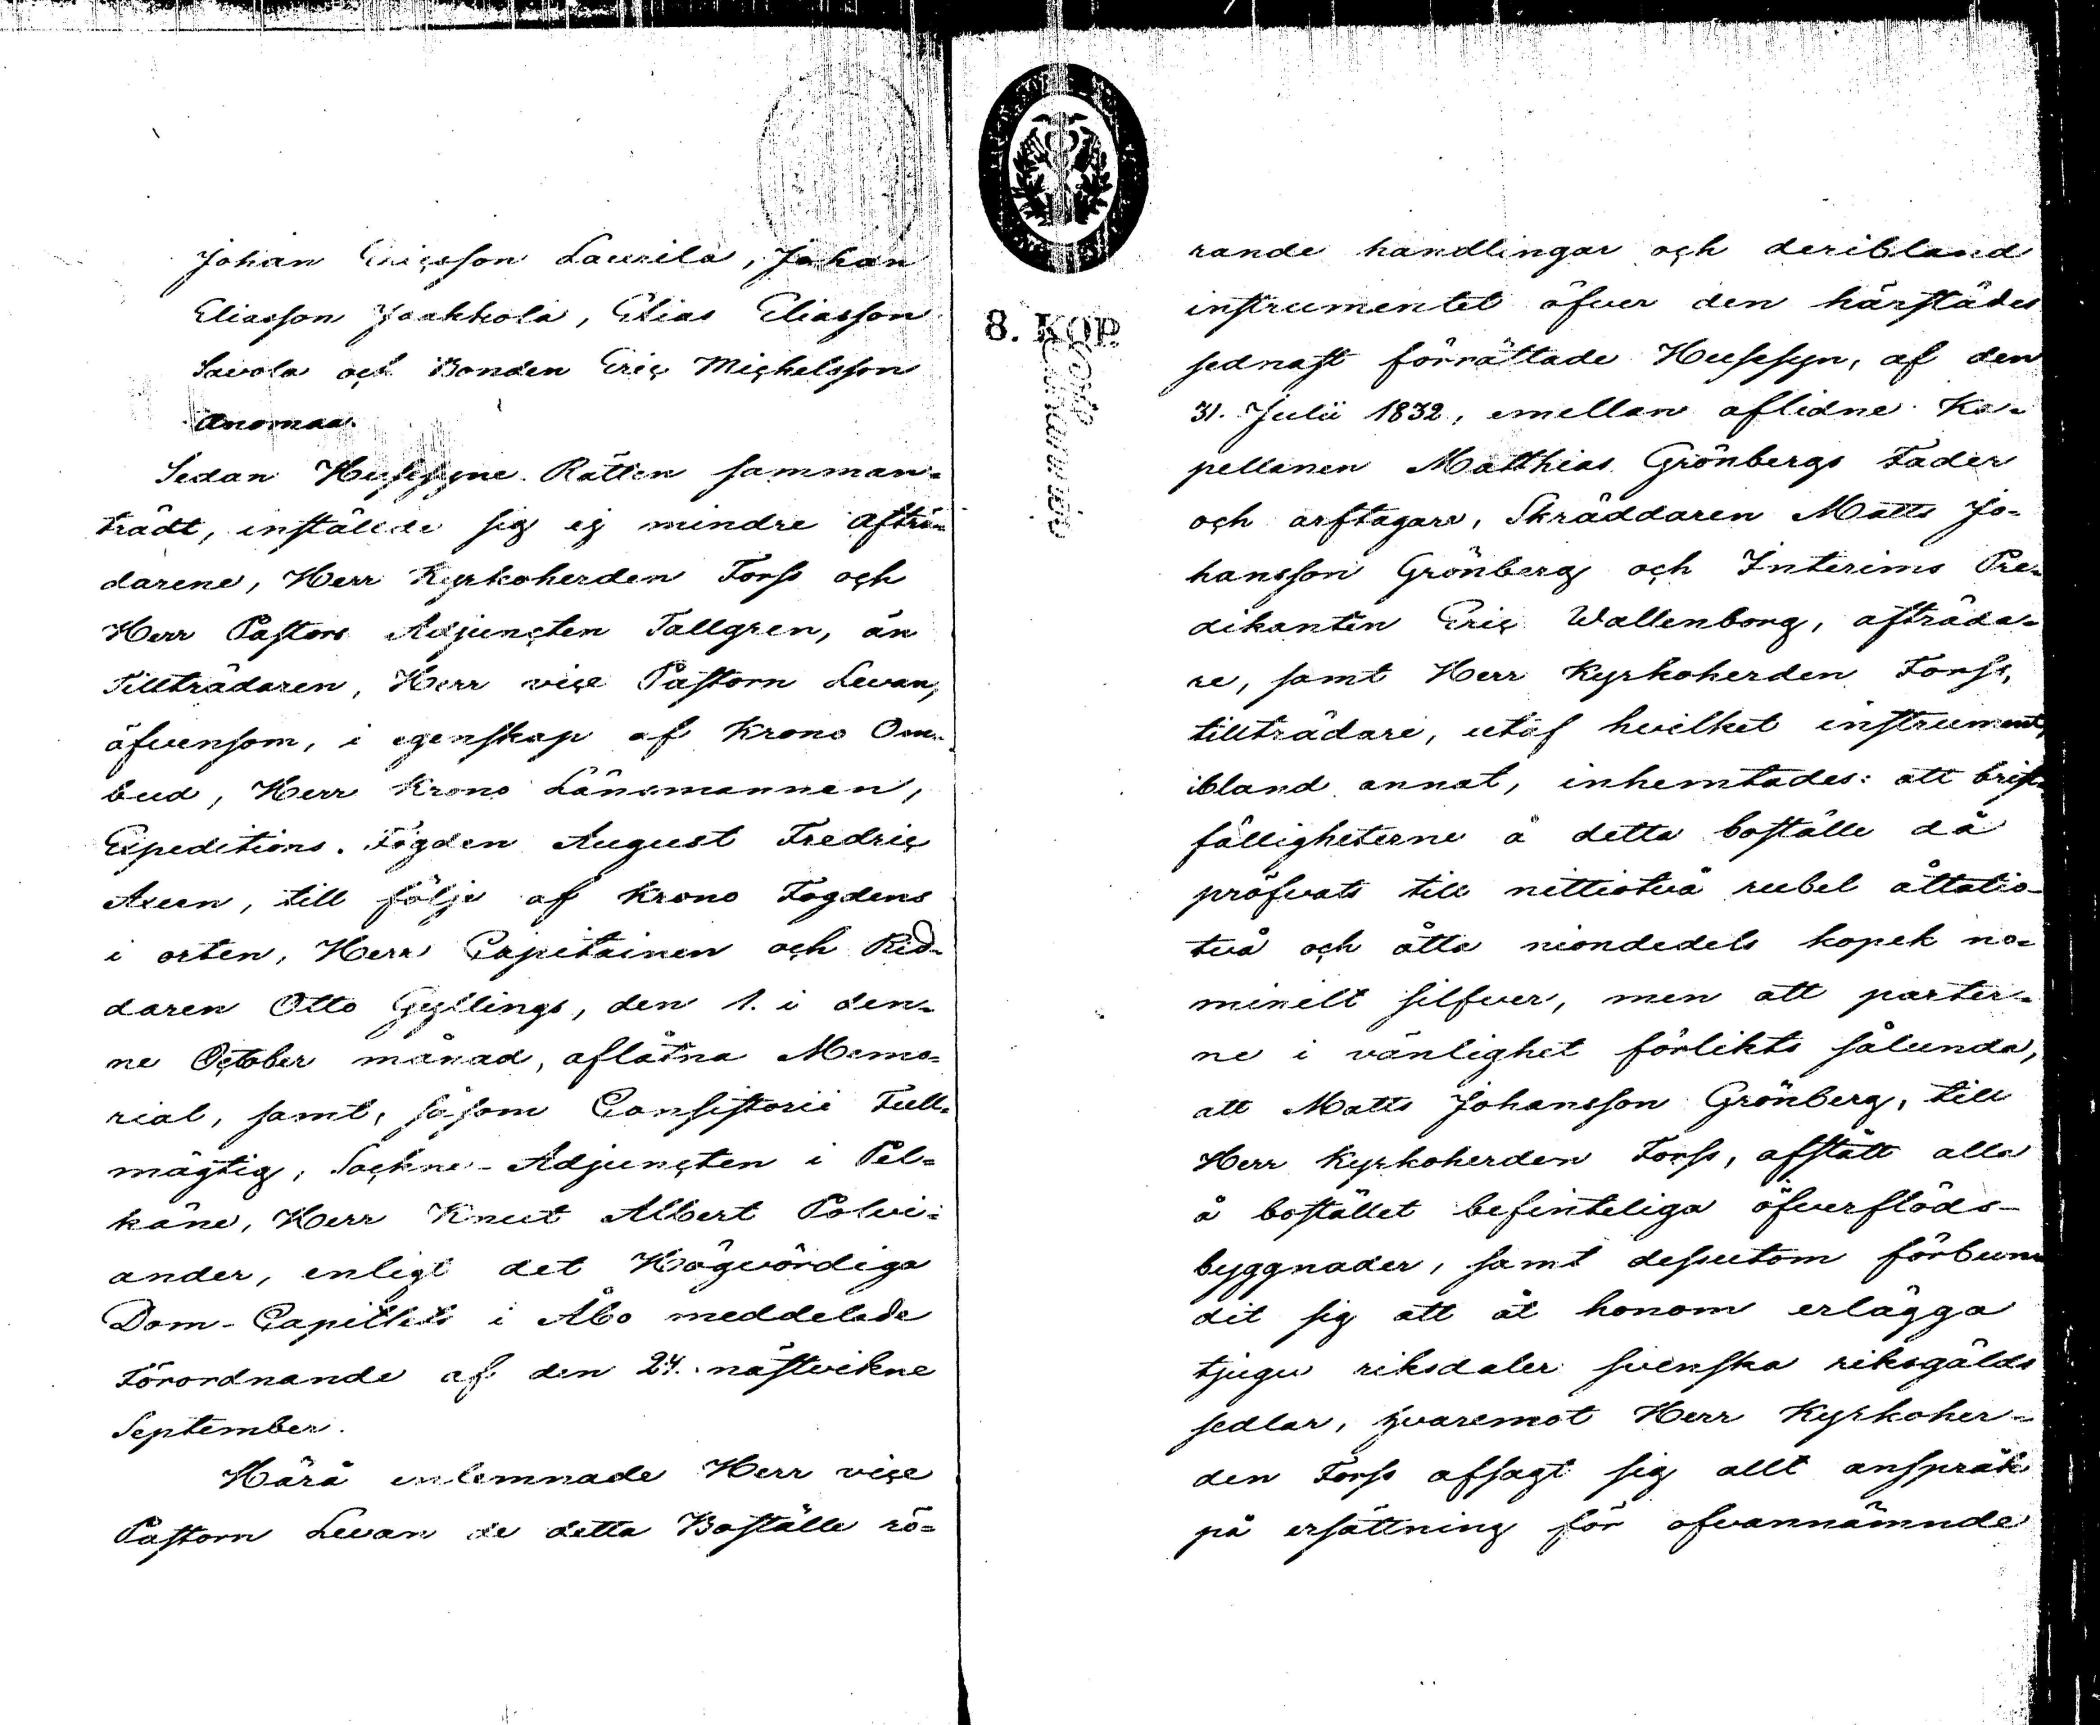 Johan Ericsson Laurila, Johan
Eliasson Jaakkola, Elias Eliasson
Savola och Bonden Eric Michelsson
Anomaa.
Sedan Husesyne-Rätten samman-
trädt, inställde sig ej mindre afträ-
darene, Herr Kyrkoherden Forss och
Herr Pastors Adjuncten Tallgren, än
Tillträdaren, Herr vice Pastorn Levan,
äfvensom, i egenskap af Krono Om-
bud, Herr Krono Länsmannen,
Expeditions-Fogden August Fredric
Axeen, till följe af Krono Fogdens
i orten, Herr Capitainen och Rid-
daren Otto Gyllings, den 1. i den-
ne October månad, aflåtna Memo-
rial, samt, såsom Consistorii Full-
mägtig, Sockne-Adjuncten i Päl-
käne, Herr Knut Albert Polvi-
ander, enligt det Högvördiga
Dom-Capitlets i Åbo meddelade
Förordnande af den 24. nästvikne
September.
Härå inlemnade Herr vice
Pastorn Levan de detta Boställe rö-
8. KOP.
rande handlingar och deribland
instrumentet öfver den härstädes
sednast förrättade Husesyn, af den
31. Julii 1832, emellan aflidne Ka-
pellanen Matthias Grönbergs Fader
och arftagare, Skräddaren Matts Jo-
hansson Grönberg och Interims Pre-
dikanten Eric Wallenborg, afträda-
re, samt Herr Kyrkoherden Forss,
tillträdare, utaf hvilket instrument,
ibland annat, inhemtades: att brist-
fälligheterne å detta boställe då
pröfvats till nittiotvå rubel åttatio-
två och åtta niondedels kopek no-
minelt silfver, men att parter-
ne i vänlighet förlikts sålunda,
att Matts Johansson Grönberg, till
Herr Kyrkoherden Forss, afstått alla
å bostället befinteliga öfverflöds-
byggnader, samt dessutom förbun-
dit sig att åt honom erlägga
tjugu riksdaler svenska riksgälds
sedlar, hvaremot Herr Kyrkoher-
den Forss afsagt sig allt anspråk
på ersättning för ofvannämnde